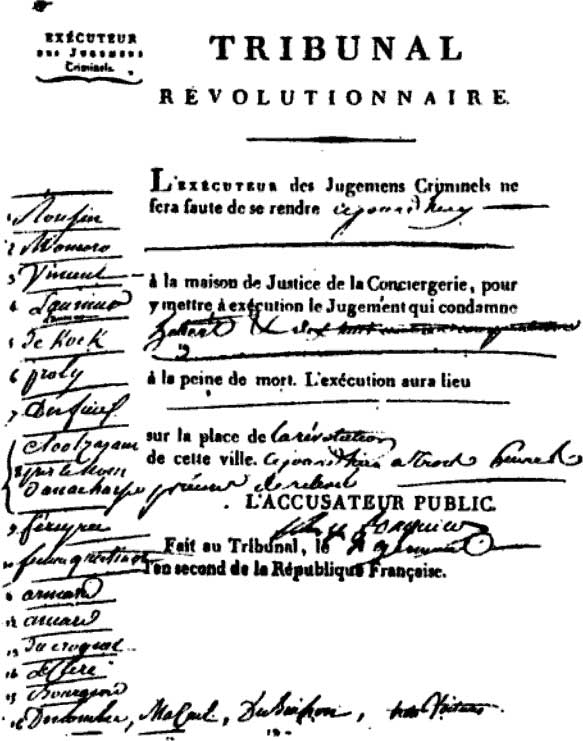 EXÉCUTEUR
DES JUGEMENS
Criminels.
TRIBUNAL
RÉVOLUTIONNAIRE.
L'EXÉCUTEUR des Jugemens Criminels ne
fera faute de se rendre cejourd'huy
à la maison de Justice de la Conciergerie, pour
y mettre à exécution le Jugement qui condamne
hebert &
à la peine de mort. L'exécution aura lieu
sur la place de la révolution
de cette ville. cejourd'hui heures de
L'ACCUSATEUR PUBLIC.
Fait au Tribunal, le 4 germinal
l'an second de la République Française.
1 Ronsin
2 Momoro
3 Vincent
4 Laumur
5 De Kock
6 proly
7 Desfieux
8 Clootz
pereyra
10
11 armand
12 ancard
13 Ducroquet
14 Leclerc
15 Bourgeois
16 Descombes, Mazuel, Dubuisson,